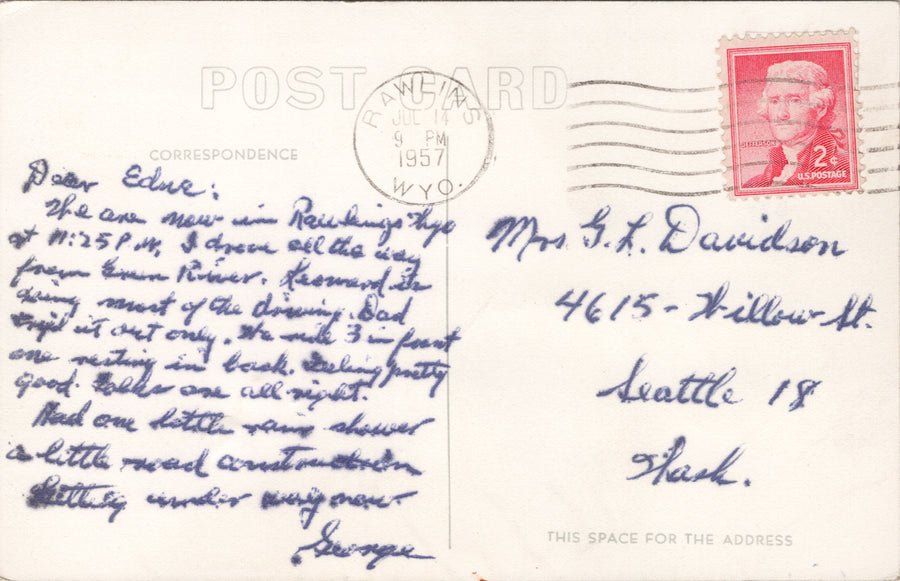 POST CARD
RAWLINS
JUL 14
9 PM
1957
WYO.
JEFFERSON
2¢
U.S. POSTAGE
CORRESPONDENCE
Dear Edne:
We are now in Rawlings Wyo
at 11:25 P.M. I drove all the way
from Green River. Leonard is
doing most of the driving. Dad
try'd it out only. We ride 3 in front
one resting in back. Feeling pretty
good. Folks are all right.
Had one little rain shower
a little road construction
Getting under way now
George
Mrs. G. L. Davidson
4615 - Willow St.
Seattle 18
Wash.
THIS SPACE FOR THE ADDRESS